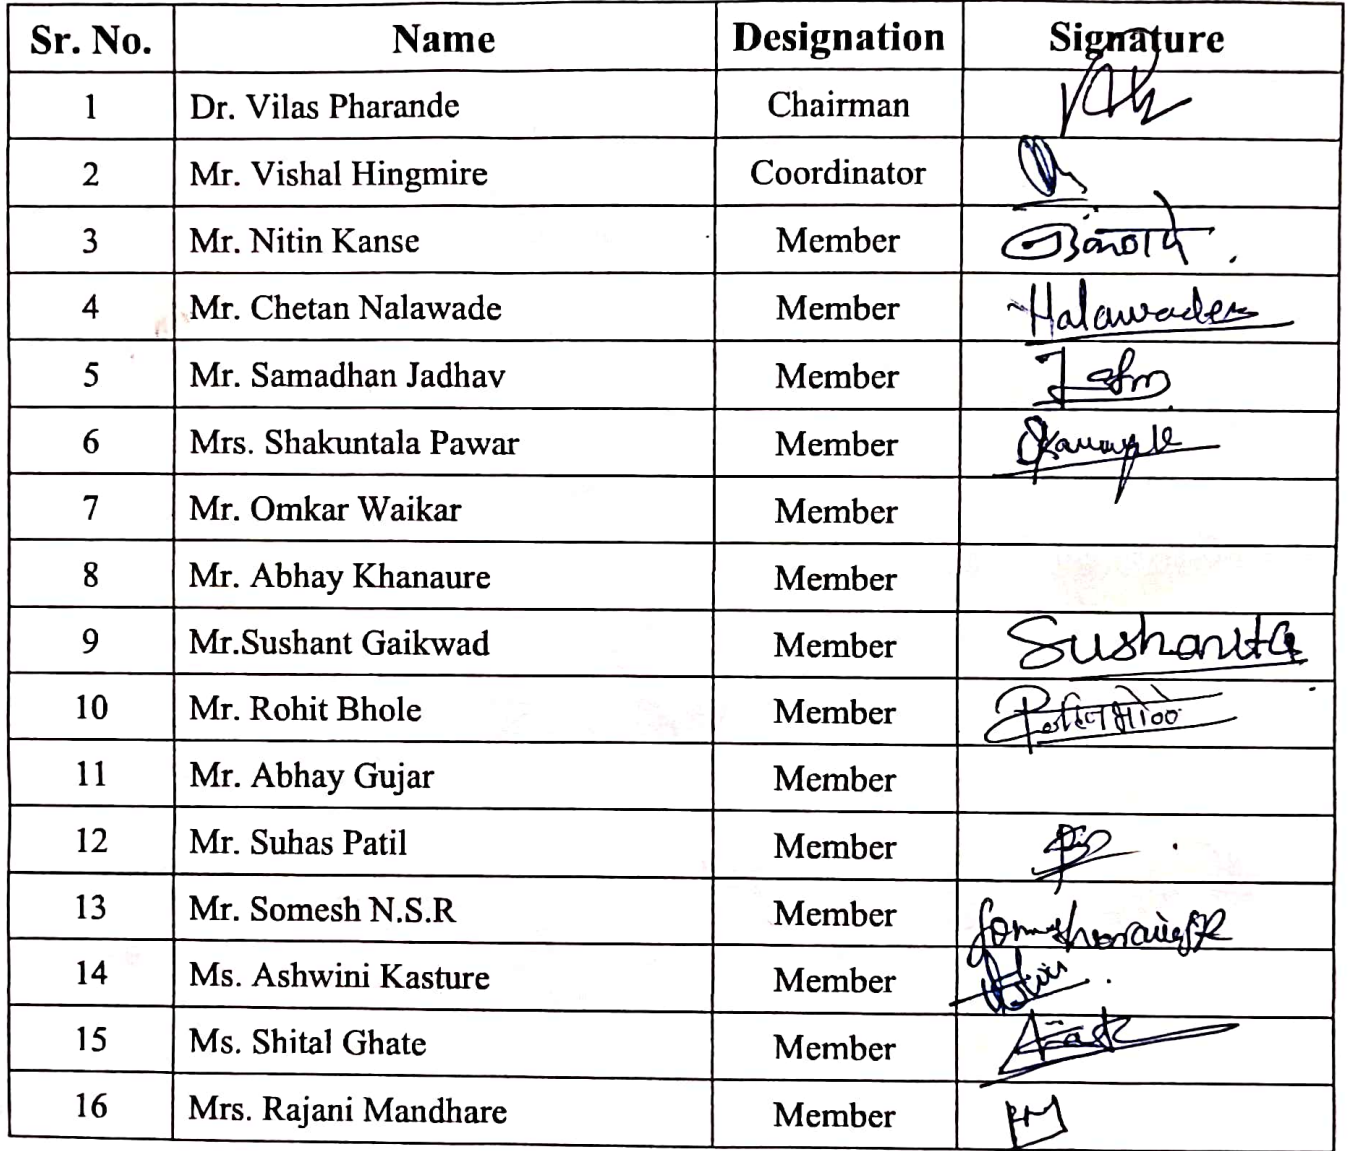 Sr. No. Name Designation Signature
1 Dr. Vilas Pharande Chairman
2 Mr. Vishal Hingmire Coordinator
3 Mr. Nitin Kanse Member
4 Mr. Chetan Nalawade Member
5 Mr. Samadhan Jadhav Member
6 Mrs. Shakuntala Pawar Member
7 Mr. Omkar Waikar Member
8 Mr. Abhay Khanaure Member
9 Mr.Sushant Gaikwad Member
10 Mr. Rohit Bhole Member
11 Mr. Abhay Gujar Member
12 Mr. Suhas Patil Member
13 Mr. Somesh N.S.R Member
14 Ms. Ashwini Kasture Member
15 Ms. Shital Ghate Member
16 Mrs. Rajani Mandhare Member